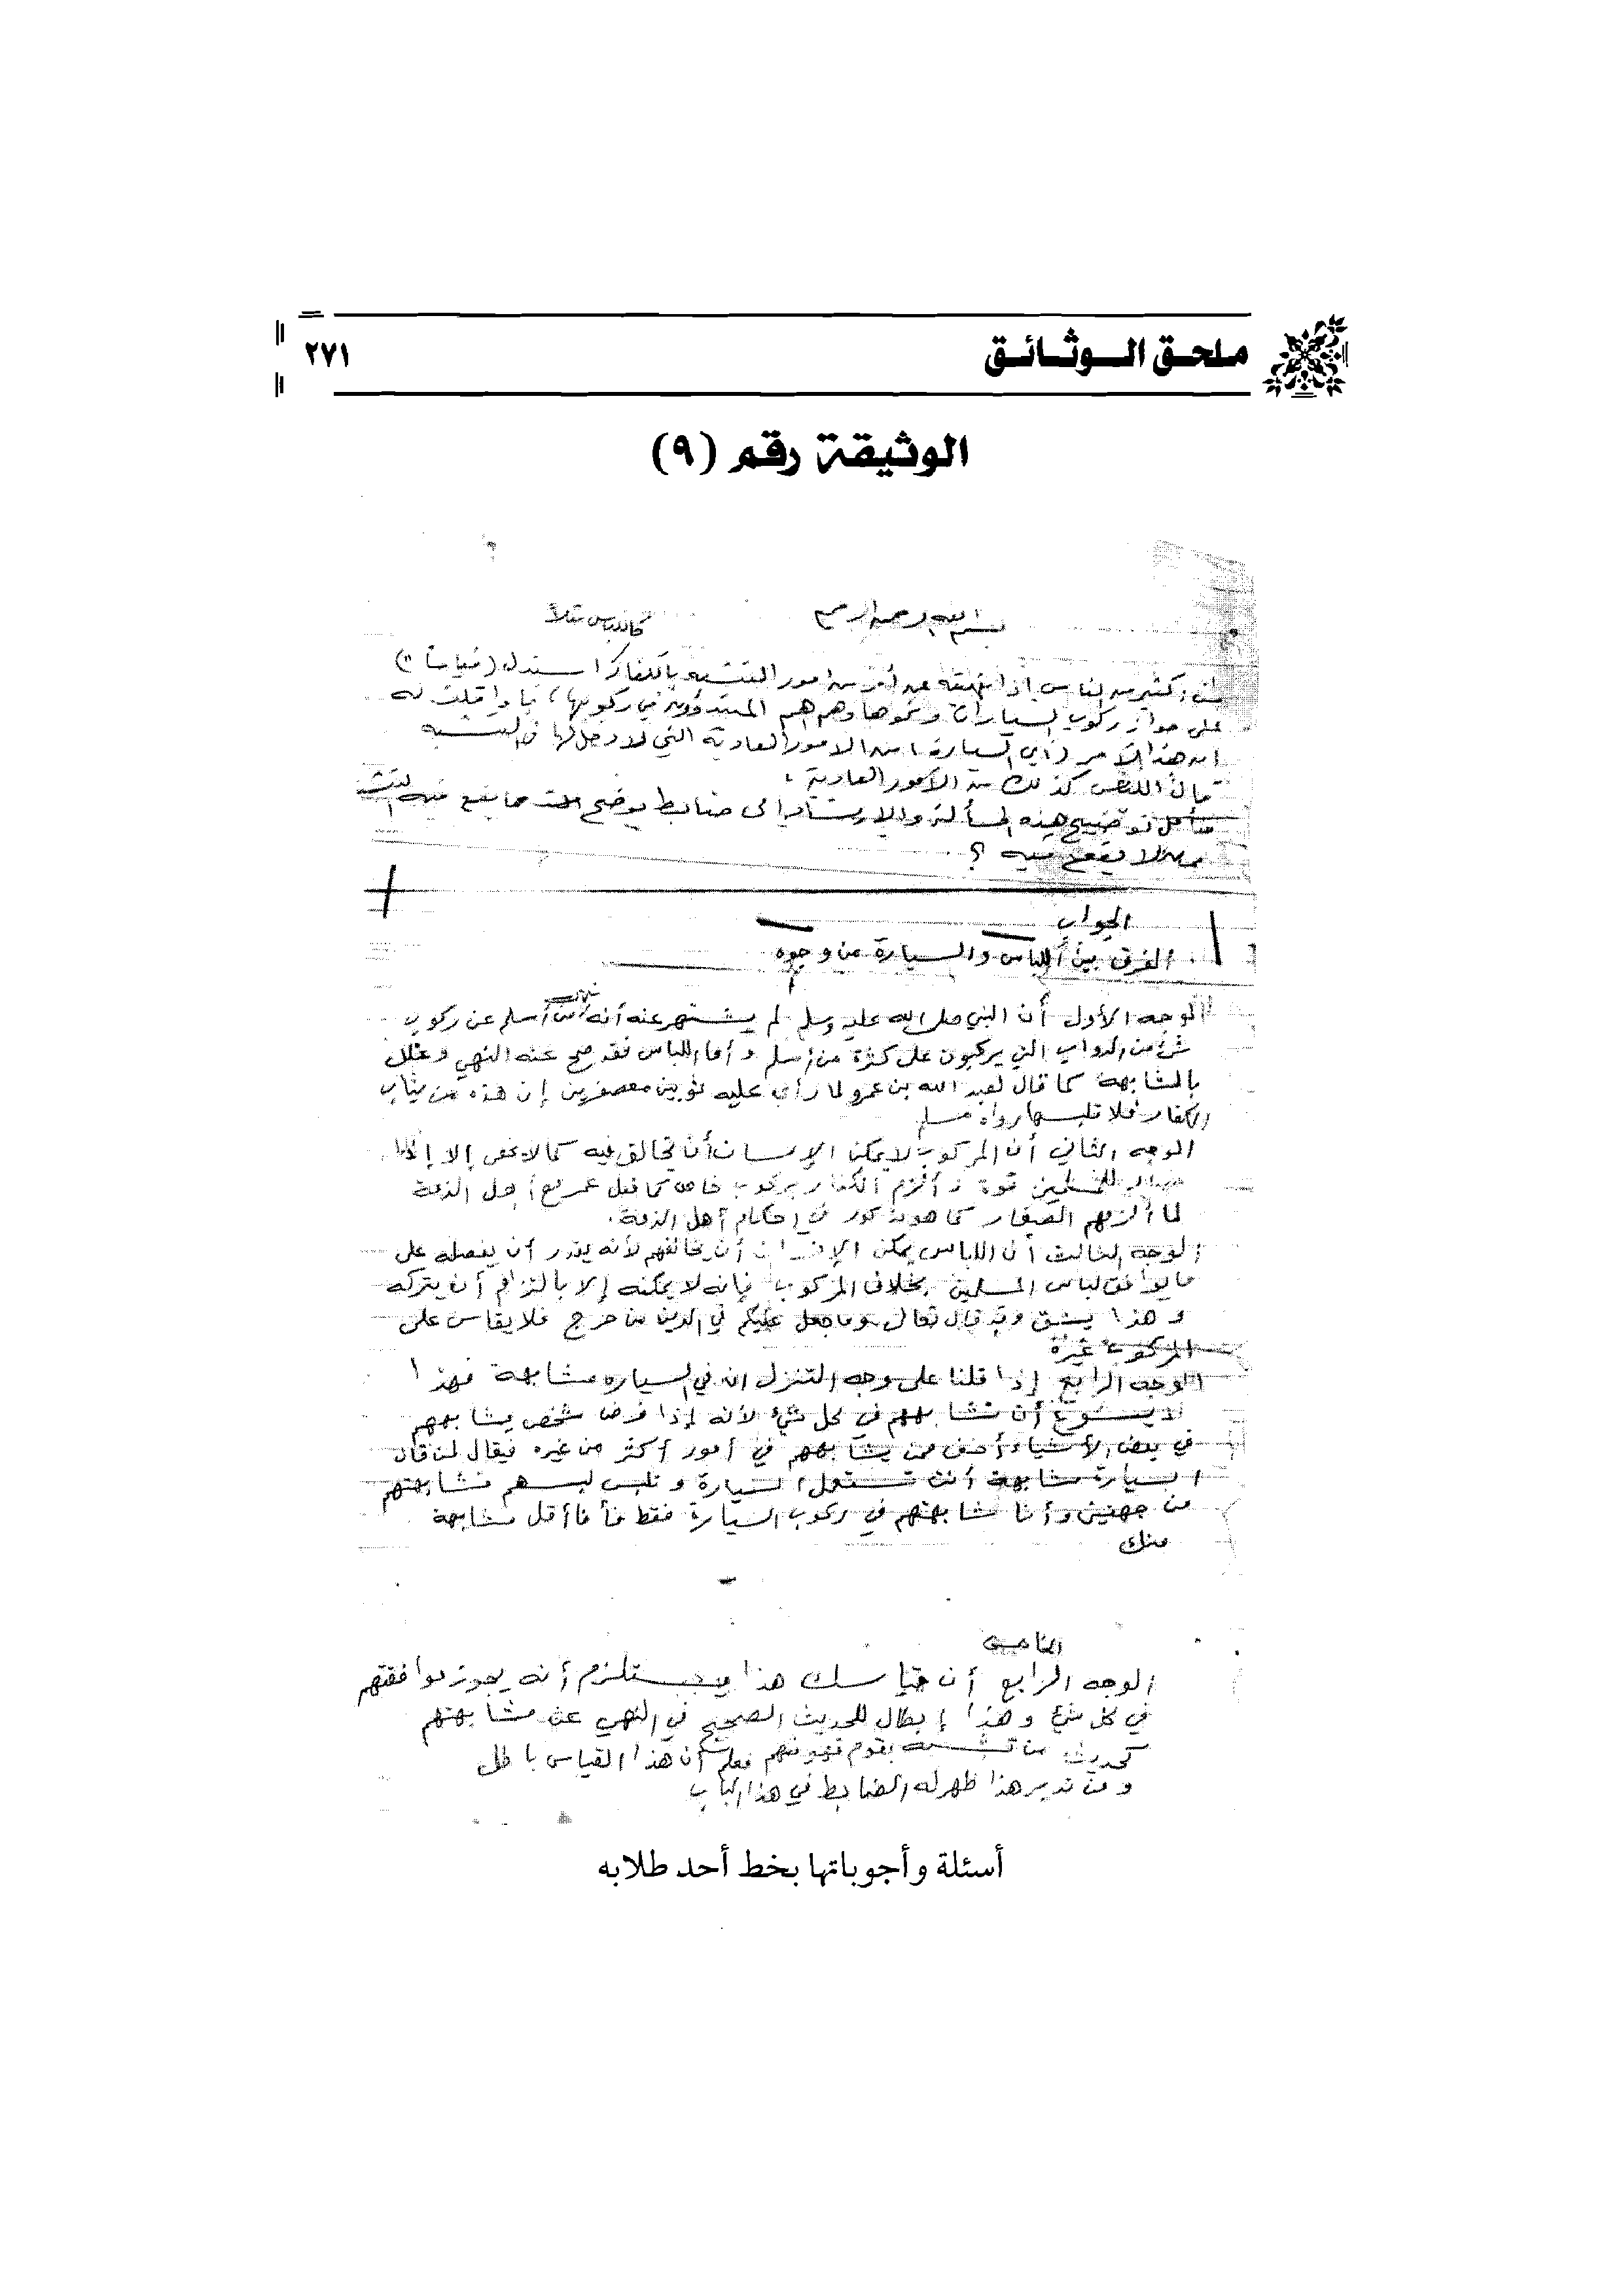 ملحق الوثائق
٢٧١
الوثيقة رقم (٩)
بسم الله الرحمن الرحيم
كاللباس مثلاً
كثير من الناس إذا نهيته عن أمر من أمور التشبه بالكفار استدل (قياساً)
على جواز ركوب السيارات ونحوها وهم هم المبتدؤون في ركوبها، فإذا قلت له
إن هذا الأمر (أي السيارة) من الأمور العادية التي لا دخل لها في التشبه
قال اللبس كذلك من الأمور العادية.
نأمل توضيح هذه المسألة والإرشاد إلى ضابط يوضح ما يقع فيه التشبه
وما لا يقع فيه؟
الجواب
الفرق بين اللباس والسيارة من وجوه
الوجه الأول أن النبي صلى الله عليه وسلم لم يشتهر عنه أنه نهى من أسلم عن ركوب
شيء من الدواب التي يركبون على كثرة من أسلم وأما اللباس فقد صح عنه النهي وعلل
بالمشابهة كما قال لعبد الله بن عمرو لما رأى عليه ثوبين معصفرين إن هذه من ثياب
الكفار فلا تلبسها رواه مسلم
الوجه الثاني أن المركوب لا يمكن الإنسان أن يخالف فيه كما لا يخفى إلا إذا
صار للمسلمين قوة وألزم الكفار بركوب خاص كما فعل عمر مع أهل الذمة
لما ألزمهم الصغار كما هو مذكور في أحكام أهل الذمة.
الوجه الثالث أن اللباس يمكن الإنسان أن يخالفهم لأنه يقدر أن يفصله على
ما يوافق لباس المسلمين بخلاف المركوب فإنه لا يمكنه إلا بالتزام أن يتركه
وهذا يشق وقد قال تعالى وما جعل عليكم في الدين من حرج فلا يقاس على
المركوب غيره
الوجه الرابع إذا قلنا على وجه التنزل ان في السيارة مشابهة فهذا
لا يسوغ أن نشابههم في كل شيء لأنه إذا فرض شخص يشابههم
في بعض الأشياء أخف ممن يشابههم في أمور أكثر من غيره فيقال لمن قال
السيارة مشابهة أنت تستعمل السيارة وتلبس لبسهم فشابهتهم
من جهتين وأنا شابهتهم في ركوب السيارة فقط فأنا أقل مشابهة
منك
الخامس
الوجه الرابع أن قياسك هذا يستلزم أنه يجوز موافقتهم
في كل شيء وهذا إبطال للحديث الصحيح في النهي عن مشابهتهم
كحديث من تشبه بقوم فهو منهم فعلم أن هذا القياس باطل
ومن تدبر هذا ظهر له الضابط في هذا الباب
أسئلة وأجوباتها بخط أحد طلابه